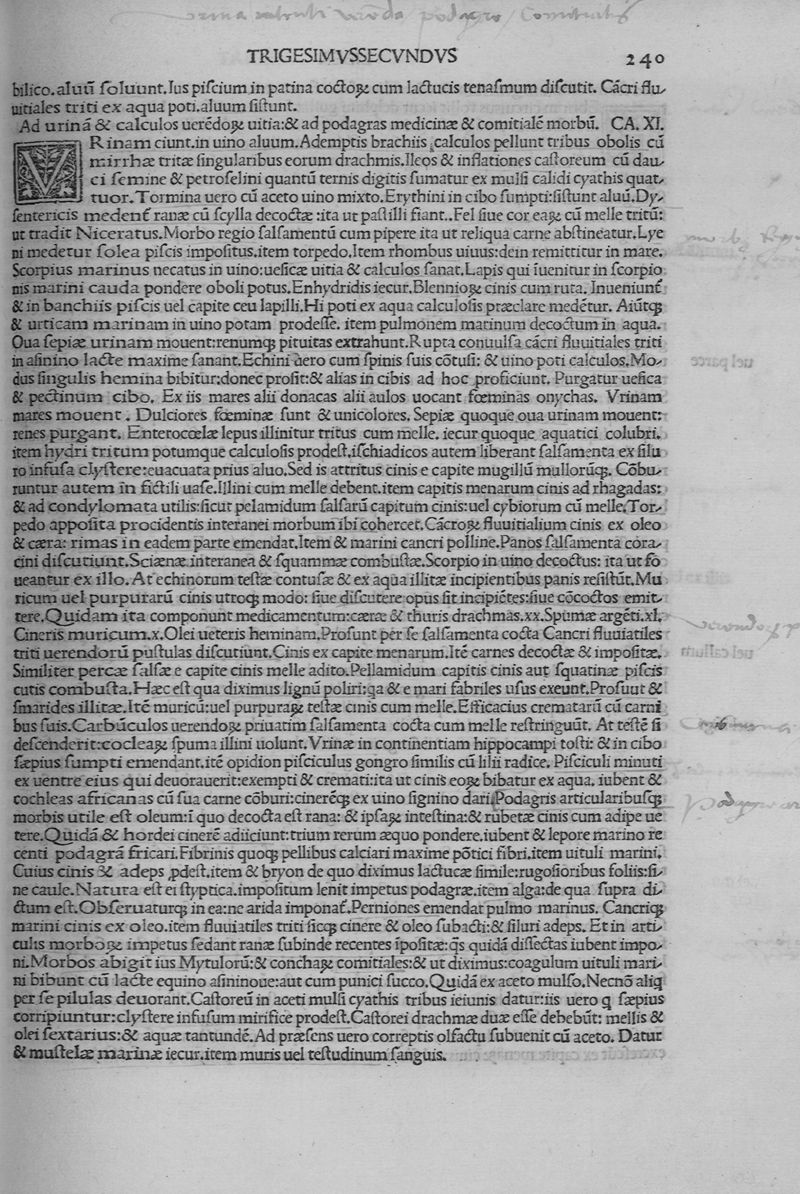 TRIGESIMVSSECVNDVS 240
bilico.aluũ soluunt.Ius piscium in patina coctoꝝ cum lactucis tenasmum discutit. Cãcri flu-
uitiales triti ex aqua poti.aluum sistunt.
Ad urinã & calculos uerẽdoꝝ uitia:& ad podagras medicinæ & comitialẽ morbũ. CA. XI.
VRinam ciunt.in uino aluum.Ademptis brachiis calculos pellunt tribus obolis cũ
mirrhæ tritæ singularibus eorum drachmis.Ileos & inflationes castoreum cũ dau-
ci semine & petroselini quantũ ternis digitis sumatur ex mulsi calidi cyathis quat-
tuor.Tormina uero cũ aceto uino mixto.Erythini in cibo sumpti:sistunt aluũ.Dy-
sentericis medenť ranæ cũ scylla decoctæ :ita ut pastilli fiant..Fel siue cor eaꝝ cũ melle tritũ:
ut tradit Niceratus.Morbo regio salsamentũ cum pipere ita ut reliqua carne abstineatur.Lye
ni medetur solea piscis impositus.item torpedo.Item rhombus uiuus:dein remittitur in mare.
Scorpius marinus necatus in uino:uesicæ uitia & calculos sanat.Lapis qui iuenitur in scorpio
nis marini cauda pondere oboli potus.Enhydridis iecur.Blennioꝝ cinis cum ruta. Inueniunť
& in banchiis piscis uel capite ceu lapilli.Hi poti ex aqua calculosis præclare medẽtur. Aiũtqꝫ
& urticam marinam in uino potam prodesse. item pulmonem marinum decoctum in aqua.
Qua sepiæ urinam mouent:renumqꝫ pituitas extrahunt.Rupta conuulsa cãcri fluuitiales triti
in asinino lacte maxime sanant.Echini uero cum spinis suis cõtusi: & uino poti calculos.Mo-
dus singulis hemina bibitur:donec prosit:& alias in cibis ad hoc proficiunt. Purgatur uesica
& pectinum cibo. Ex iis mares alii donacas alii aulos uocant fœminas onychas. Vrinam
mares mouent . Dulciores fœminæ sunt & unicolores. Sepiæ quoque oua urinam mouent:
renes purgant. Enterocœlæ lepus illinitur tritus cum melle. iecur quoque aquatici colubri.
item hydri tritum potumque calculosis prodest.ischiadicos autem liberant salsamenta ex silu
ro infusa clystere:euacuata prius aluo.Sed is attritus cinis e capite mugillũ mullorũqꝫ. Cõbu-
runtur autem in fictili uase.Illini cum melle debent.item capitis menarum cinis ad rhagadas:
& ad condylomata utilis:sicut pelamidum salsarũ capitum cinis:uel cybiorum cũ melle.Tor-
pedo apposita procidentis interanei morbum ibi cohercet.Cãcroꝝ fluuitialium cinis ex oleo
& cæra: rimas in eadem parte emendat.Item & marini cancri polline.Panos salsamenta cora-
cini discutiunt.Sciænæ interanea & squammæ combustæ.Scorpio in uino decoctus: ita ut fo
ueantur ex illo. At echinorum testæ contusæ & ex aqua illitæ incipientibus panis resistũt.Mu
ricum uel purpurarũ cinis utroqꝫ modo: siue discutere opus sit incipiẽtes:siue cõcoctos emit-
tere.Quidam ita componunt medicamentum:cæræ & thuris drachmas.xx.Spumæ argẽti.xl.
Cineris muricum.x.Olei ueteris heminam.Prosunt per se salsamenta cocta Cancri fluuiatiles
triti uerendorũ pustulas discutiunt.Cinis ex capite menarum.Itẽ carnes decoctæ & impositæ.
Similiter percæ salsæ e capite cinis melle adito.Pellamidum capitis cinis aut squatinæ piscis
cutis combusta.Hæc est qua diximus lignũ poliri:qa & e mari fabriles usus exeunt.Prosunt &
smarides illitæ.Itẽ muricũ:uel purpuraꝝ testæ cinis cum melle.Efficacius crematarũ cũ carni
bus suis.Carbũculos uerendoꝝ priuatim salsamenta cocta cum melle restringuũt. At testẽ si
descenderit:cocleaꝝ spuma illini uolunt.Vrinæ in continentiam hippocampi tosti: & in cibo
sæpius sumpti emendant.itẽ opidion pisciculus gongro similis cũ lilii radice. Pisciculi minuti
ex uentre eius qui deuorauerit:exempti & cremati:ita ut cinis eoꝝ bibatur ex aqua. iubent &
cochleas africanas cũ sua carne cõburi:cinerẽqꝫ ex uino signino dari.Podagris articularibusqꝫ
morbis utile est oleum:ĩ quo decocta est rana: & ipsaꝝ intestina:& rubetæ cinis cum adipe ue
tere.Quidã & hordei cinerẽ adiiciunt:trium rerum æquo pondere.iubent & lepore marino re
centi podagrã fricari.Fibrinis quoqꝫ pellibus calciari maxime põtici fibri.item uituli marini.
Cuius cinis & adeps ꝓdest.item & bryon de quo diximus lactucæ simile:rugosioribus foliis:si-
ne caule.Natura est ei styptica.impositum lenit impetus podagræ.item alga:de qua supra di-
ctum est.Obseruaturqꝫ in ea:ne arida imponať.Perniones emendat pulmo marinus. Cancriqꝫ
marini cinis ex oleo.item fluuiatiles triti sicqꝫ cinere & oleo subacti:& siluri adeps. Et in arti-
culis morboꝝ impetus sedant ranæ subinde recentes ĩpositæ:qs quidã dissectas iubent impo-
ni.Morbos abigit ius Mytulorũ:& conchaꝝ comitiales:& ut diximus:coagulum uituli mari-
ni bibunt cũ lacte equino asininoue:aut cum punici succo.Quidã ex aceto mulso.Necnõ aliq
per se pilulas deuorant.Castoreũ in aceti mulsi cyathis tribus ieiunis datur:iis uero q sæpius
corripiuntur:clystere infusum mirifice prodest.Castorei drachmæ duæ esse debebũt: mellis &
olei sextarius:& aquæ tantundẽ.Ad præsens uero correptis olfactu subuenit cũ aceto. Datur
& mustelæ marinæ iecur.item muris uel testudinum sanguis.